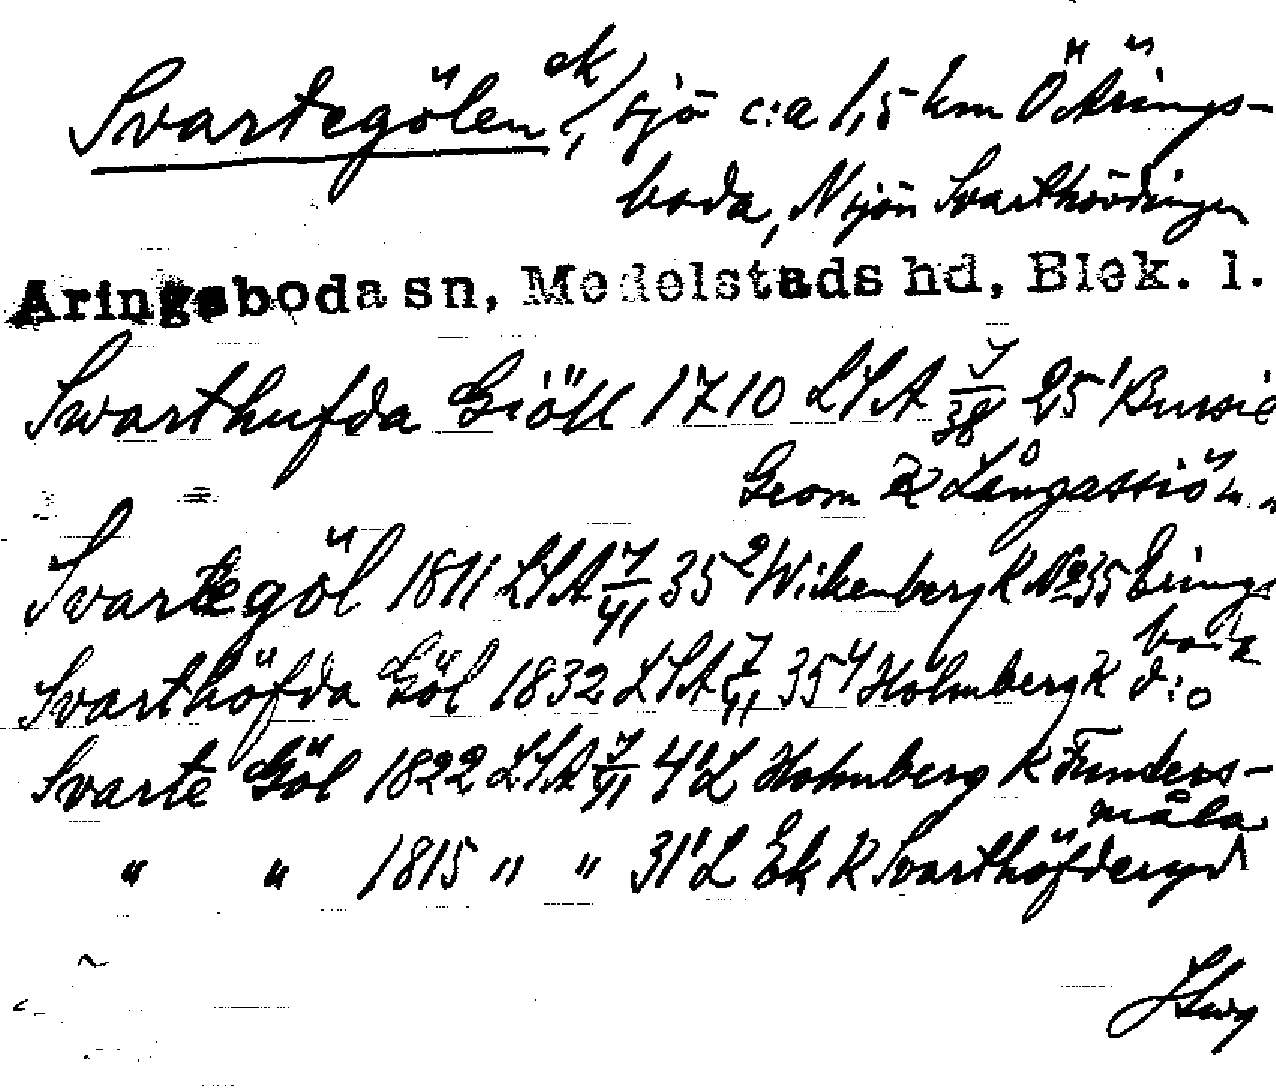 Svartegölen ek, sjö c:a 1,5 km Ö Ärings-
boda, N sjön Svarthövdingen
Äringsboda sn, Medelstads hd, Blek. l.
Swarthufda Giöll 1710 LSA 7/38 25¹ Bussie
Geom K Långassiö
Svartegöl 1811 LSA 7/41 35² Wikenberg K No 35 Erings
boda
Svarthöfda Göl 1832 LSA 7/41 35⁴ Holmberg K d:o
Svarte Göl 1822 LSA 7/41 4¹L Holmberg K Funders-
måla
" " 1815 " " 31¹L Ek K Svarthöfderyd